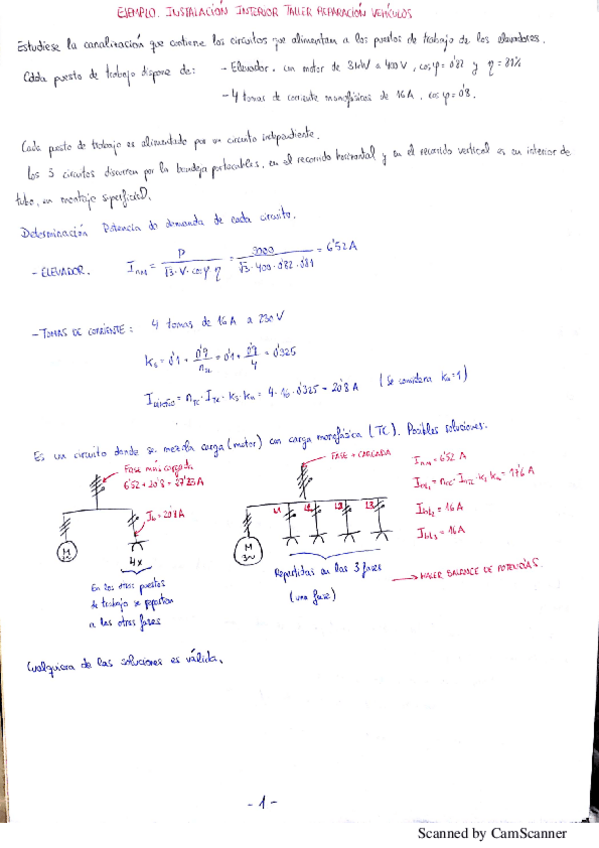 EJEMPLO. INSTALACIÓN INTERIOR TALLER REPARACIÓN VEHÍCULOS
Estudiese la canalización que contiene los circuitos que alimentan a los puestos de trabajo de los elevadores.
Cada puesto de trabajo dispone de: - Elevador. con motor de 3kW a 400V, cosφ=0'82 y η=81%
- 4 tomas de corriente monofásicas de 16A, cosφ=0'8.
Cada puesto de trabajo es alimentado por un circuito independiente.
Los 3 circuitos discurren por la bandeja portacables, en el recorrido horizontal y en el recorrido vertical es en interior de
tubo, en montaje superficial.
Determinación Potencia de demanda de cada circuito.
- ELEVADOR. InM = P / √3·V·cosφ·η = 3000 / √3·400·0'82·0'81 = 6'52A
- TOMAS DE CORRIENTE: 4 tomas de 16A a 230V
ks = 0'1 + 0'9/nTC = 0'1 + 0'9/4 = 0'325
Idiseño = nTC·ITC·ks·ku = 4·16·0'325 = 20'8A (Se considera ku=1)
Es un circuito donde se mezcla carga (motor) con carga monofásica (TC). Posibles soluciones:
Fase más cargada
6'52+20'8=27'32A
Ib=20'8A
M
4x
En los otros puestos
de trabajo se reparten
a las otras fases
FASE + CARGADA
L1 L2 L3
M
3~
Repartidas en las 3 fases
(una fase)
InM = 6'52 A
= nTC·ITC·ks·ku = 17'6 A
= 16A
= 16A
HACER BALANCE DE POTENCIAS.
Cualquiera de las soluciones es válida.
- 1 -
Scanned by CamScanner